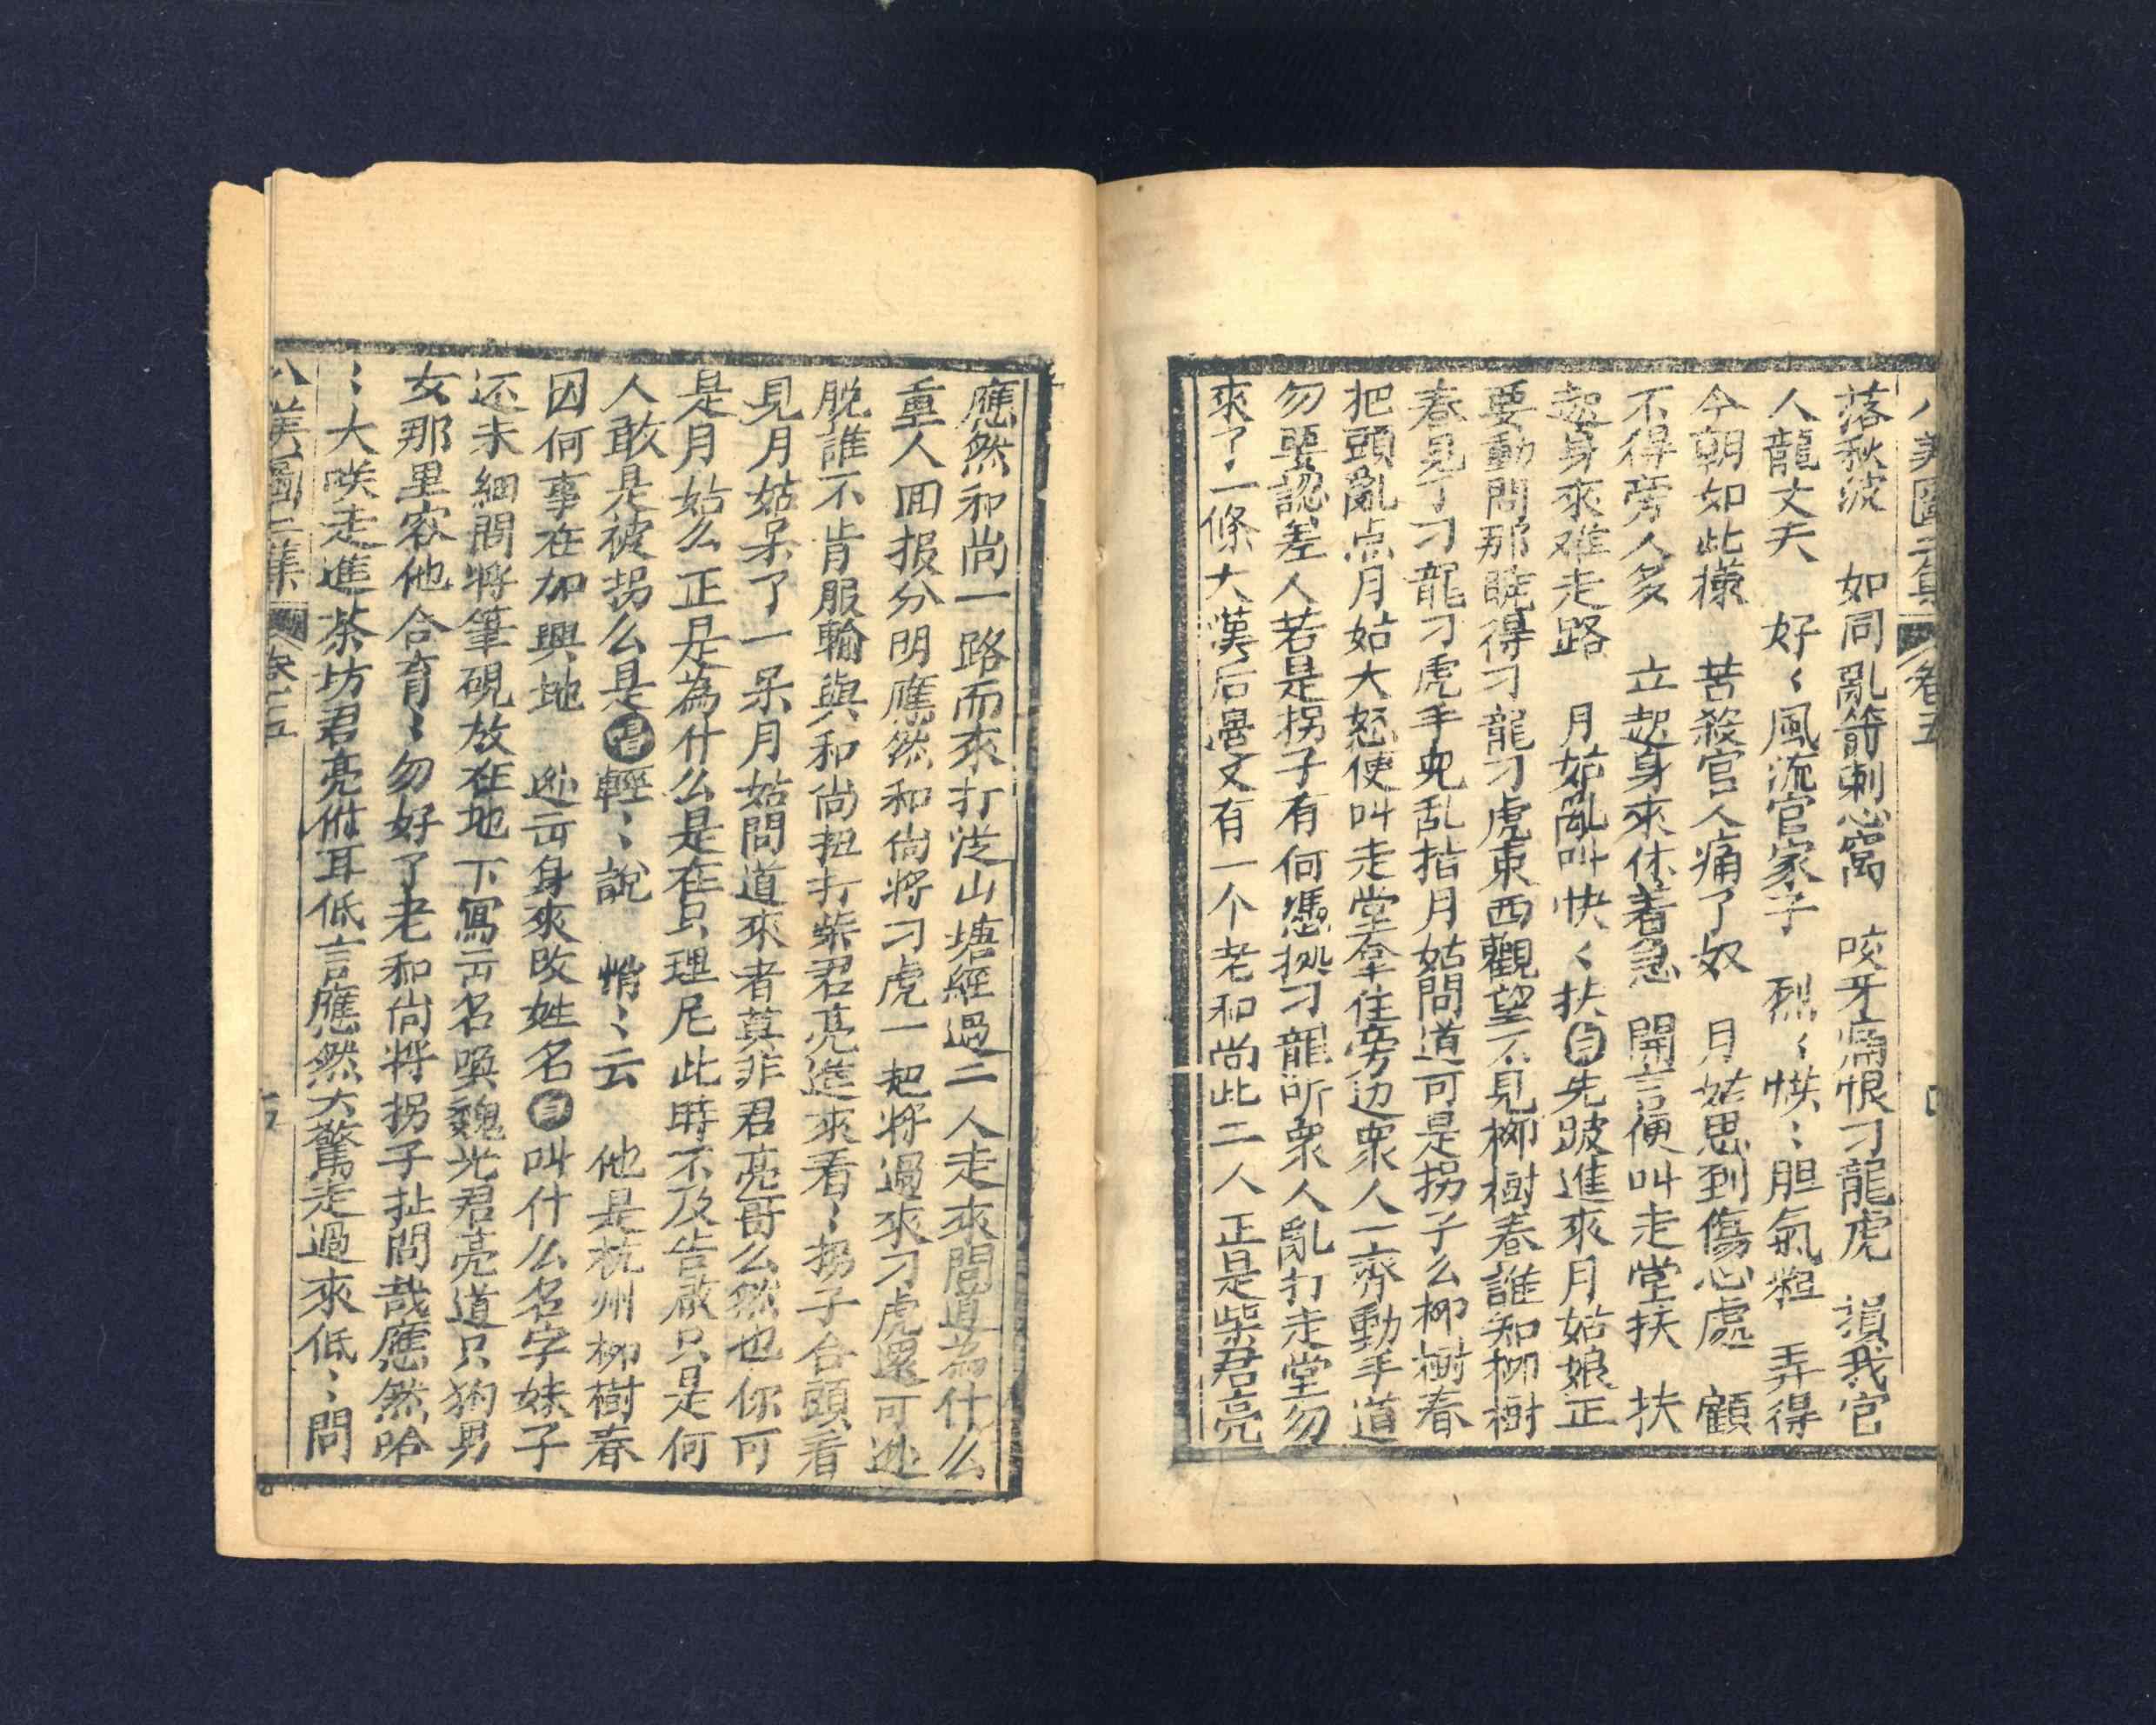 美圖二集 卷五
落秋波 如同亂箭刺心窩 咬牙痛恨刁龍虎 損我官
人龍丈夫 好〻風流官家子 烈〻烘〻胆氣粗 弄得
今朝如此樣 苦殺官人痛了奴 月姑思到傷心處 顧
不得旁人多 立起身來休着急 開言便叫走堂扶 扶
起身來难走路 月姑亂叫快〻扶 白 先跛進來月姑娘正
要動問那曉得刁龍刁虎東西觀望不見柳樹春誰知柳樹
春見了刁龍刁虎手兜乱指月姑問道可是拐子么柳樹春
把頭亂点月姑大怒便叫走堂拿住旁边衆人一齊動手道
勿要認差人若是拐子有何憑拠刁龍听衆人亂打走堂勿
來了一條大漢后邊又有一个老和尚此二人正是柴君亮
應然和尚一路而來打從山塘經過二人走來問道為什么
重人回报分明應然和尚将刁虎一把将過來刁虎還可逃
脫誰不肯服輸與和尚扭打柴君亮進來看〻拐子台頭看
見月姑呆了一呆月姑問道來者莫非君亮哥么然也你可
是月姑么正是為什么是在只理尼此時不及告啟只是何
人敢是被拐么是 唱 輕〻說 悄〻云 他是杭州柳樹春
因何事在加興地 迯云身來改姓名 白 叫什么名字妹子
还未細問将筆硯放在地下寫云名喚魏光君亮道只狗男
女那里容他合育〻勿好了老和尚将拐子扯問哉應然哈
〻大咲走進茶坊君亮附耳低言應然大驚走過來低〻問
八美圖二集 卷五